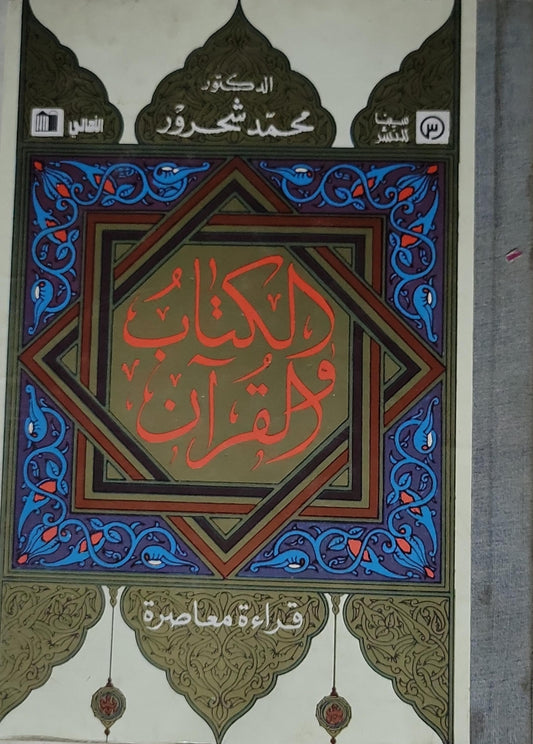 الدكتور
محمد شحرور
سينا
للنشر
الأهالي
الكتاب
والقرآن
قراءة معاصرة